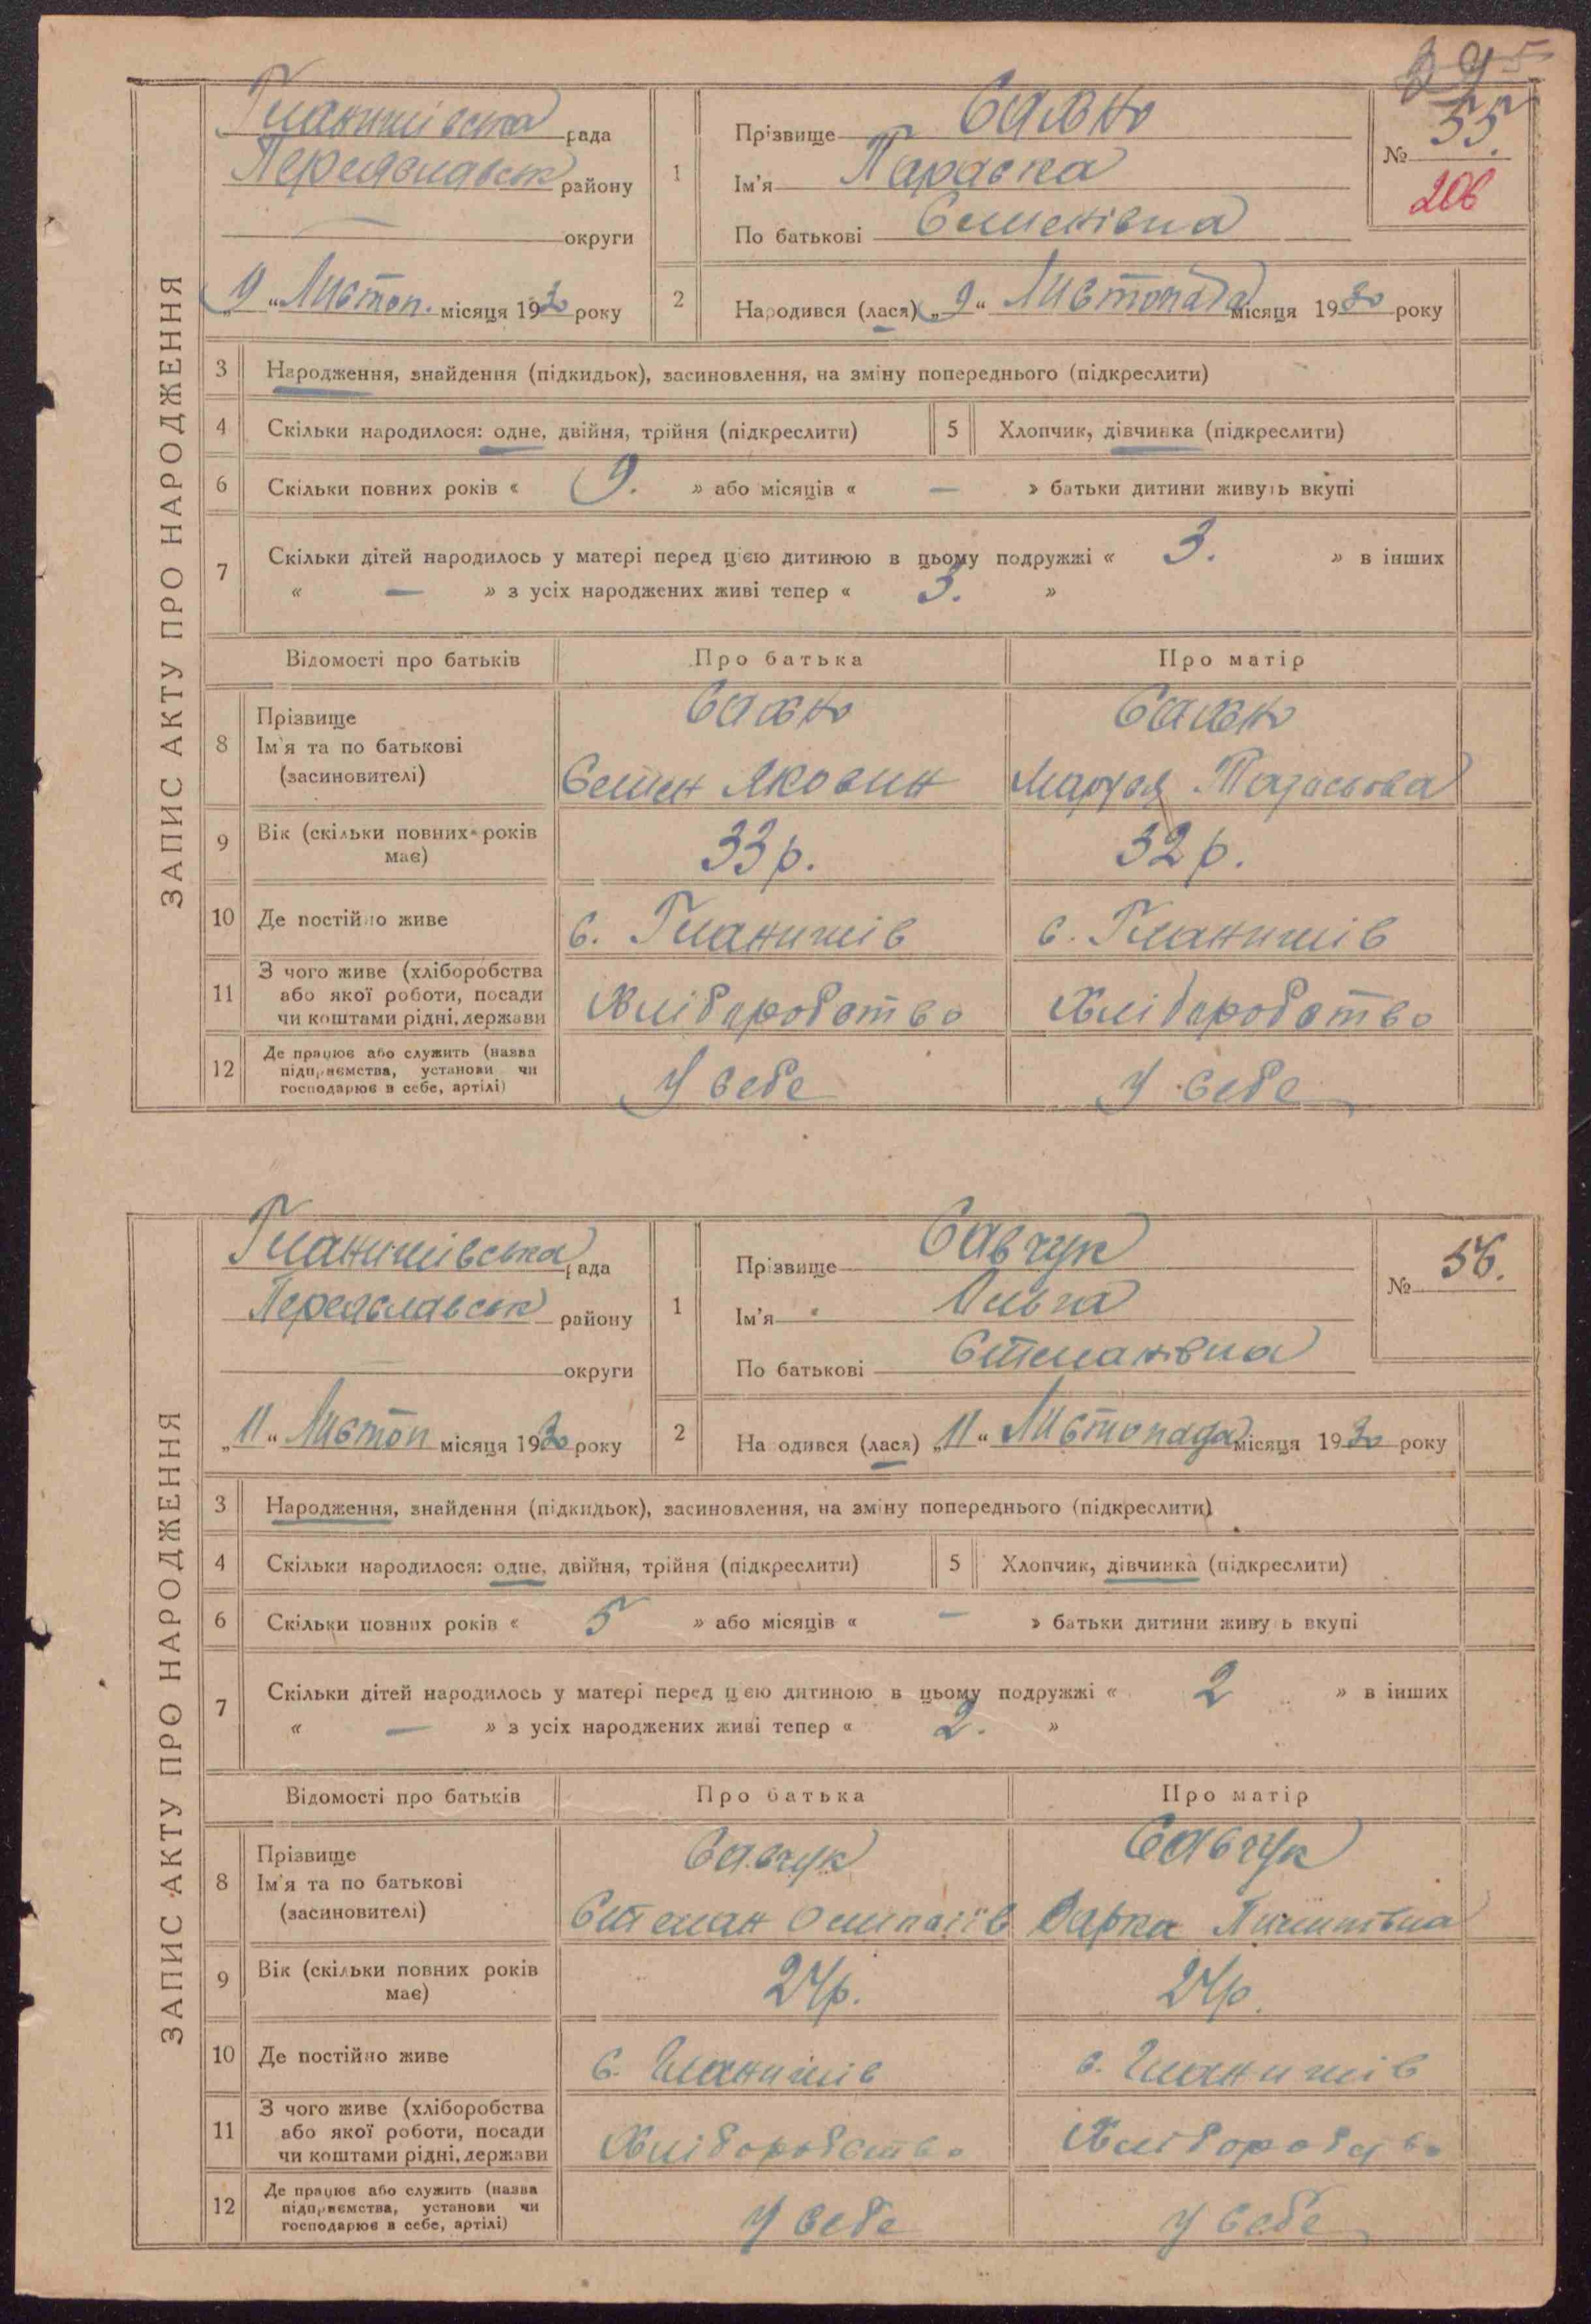 ЗАПИС АКТУ ПРО НАРОДЖЕННЯ
395
Гланишівська рада
Переяславськ району
округи
„9“ Листоп. місяця 1930 року
1
Прізвище
Ім'я Параска
По батькові Семенівна
№ 55.
206
2 Народився (лася) „9“ Листопада місяця 1930 року
3 Народження, знайдення (підкидьок), засиновлення, на зміну попереднього (підкреслити)
4 Скільки народилося: одне, двійня, трійня (підкреслити)
5 Хлопчик, дівчинка (підкреслити)
6 Скільки повних років « 9. » або місяців « — » батьки дитини живуть вкупі
7 Скільки дітей народилось у матері перед цією дитиною в цьому подружжі « 3. » в інших
« — » з усіх народжених живі тепер « 3. »
Відомості про батьків Про батька Про матір
8 Прізвище
Ім'я та по батькові
(засиновителі)
Семен Якович Марія
9 Вік (скільки повних років має) 33 р. 32 р.
10 Де постійно живе с. Гланишів с. Гланишів
11 З чого живе (хліборобства
або якої роботи, посади
чи коштами рідні, держави
Хліборобство Хліборобство
12 Де працює або служить (назва
підприємства, установи чи
господарює в себе, артілі)
У себе У себе
ЗАПИС АКТУ ПРО НАРОДЖЕННЯ
Гланишівська рада
Переяславськ району
округи
„11“ Листоп місяця 1930 року
1
Прізвище Савчук
Ім'я Ольга
По батькові Степанівна
№ 56.
2 Народився (лася) „11“ Листопада місяця 1930 року
3 Народження, знайдення (підкидьок), засиновлення, на зміну попереднього (підкреслити)
4 Скільки народилося: одне, двійня, трійня (підкреслити)
5 Хлопчик, дівчинка (підкреслити)
6 Скільки повних років « 5 » або місяців « — » батьки дитини живуть вкупі
7 Скільки дітей народилось у матері перед цією дитиною в цьому подружжі « 2 » в інших
« — » з усіх народжених живі тепер « 2. »
Відомості про батьків Про батька Про матір
8 Прізвище
Ім'я та по батькові
(засиновителі)
Савчук Савчук
Степан Дарка Пилипівна
9 Вік (скільки повних років має) 24 р. 24 р.
10 Де постійно живе с. Гланишів с. Гланишів
11 З чого живе (хліборобства
або якої роботи, посади
чи коштами рідні, держави
Хліборобство Хліборобство
12 Де працює або служить (назва
підприємства, установи чи
господарює в себе, артілі)
У себе У себе